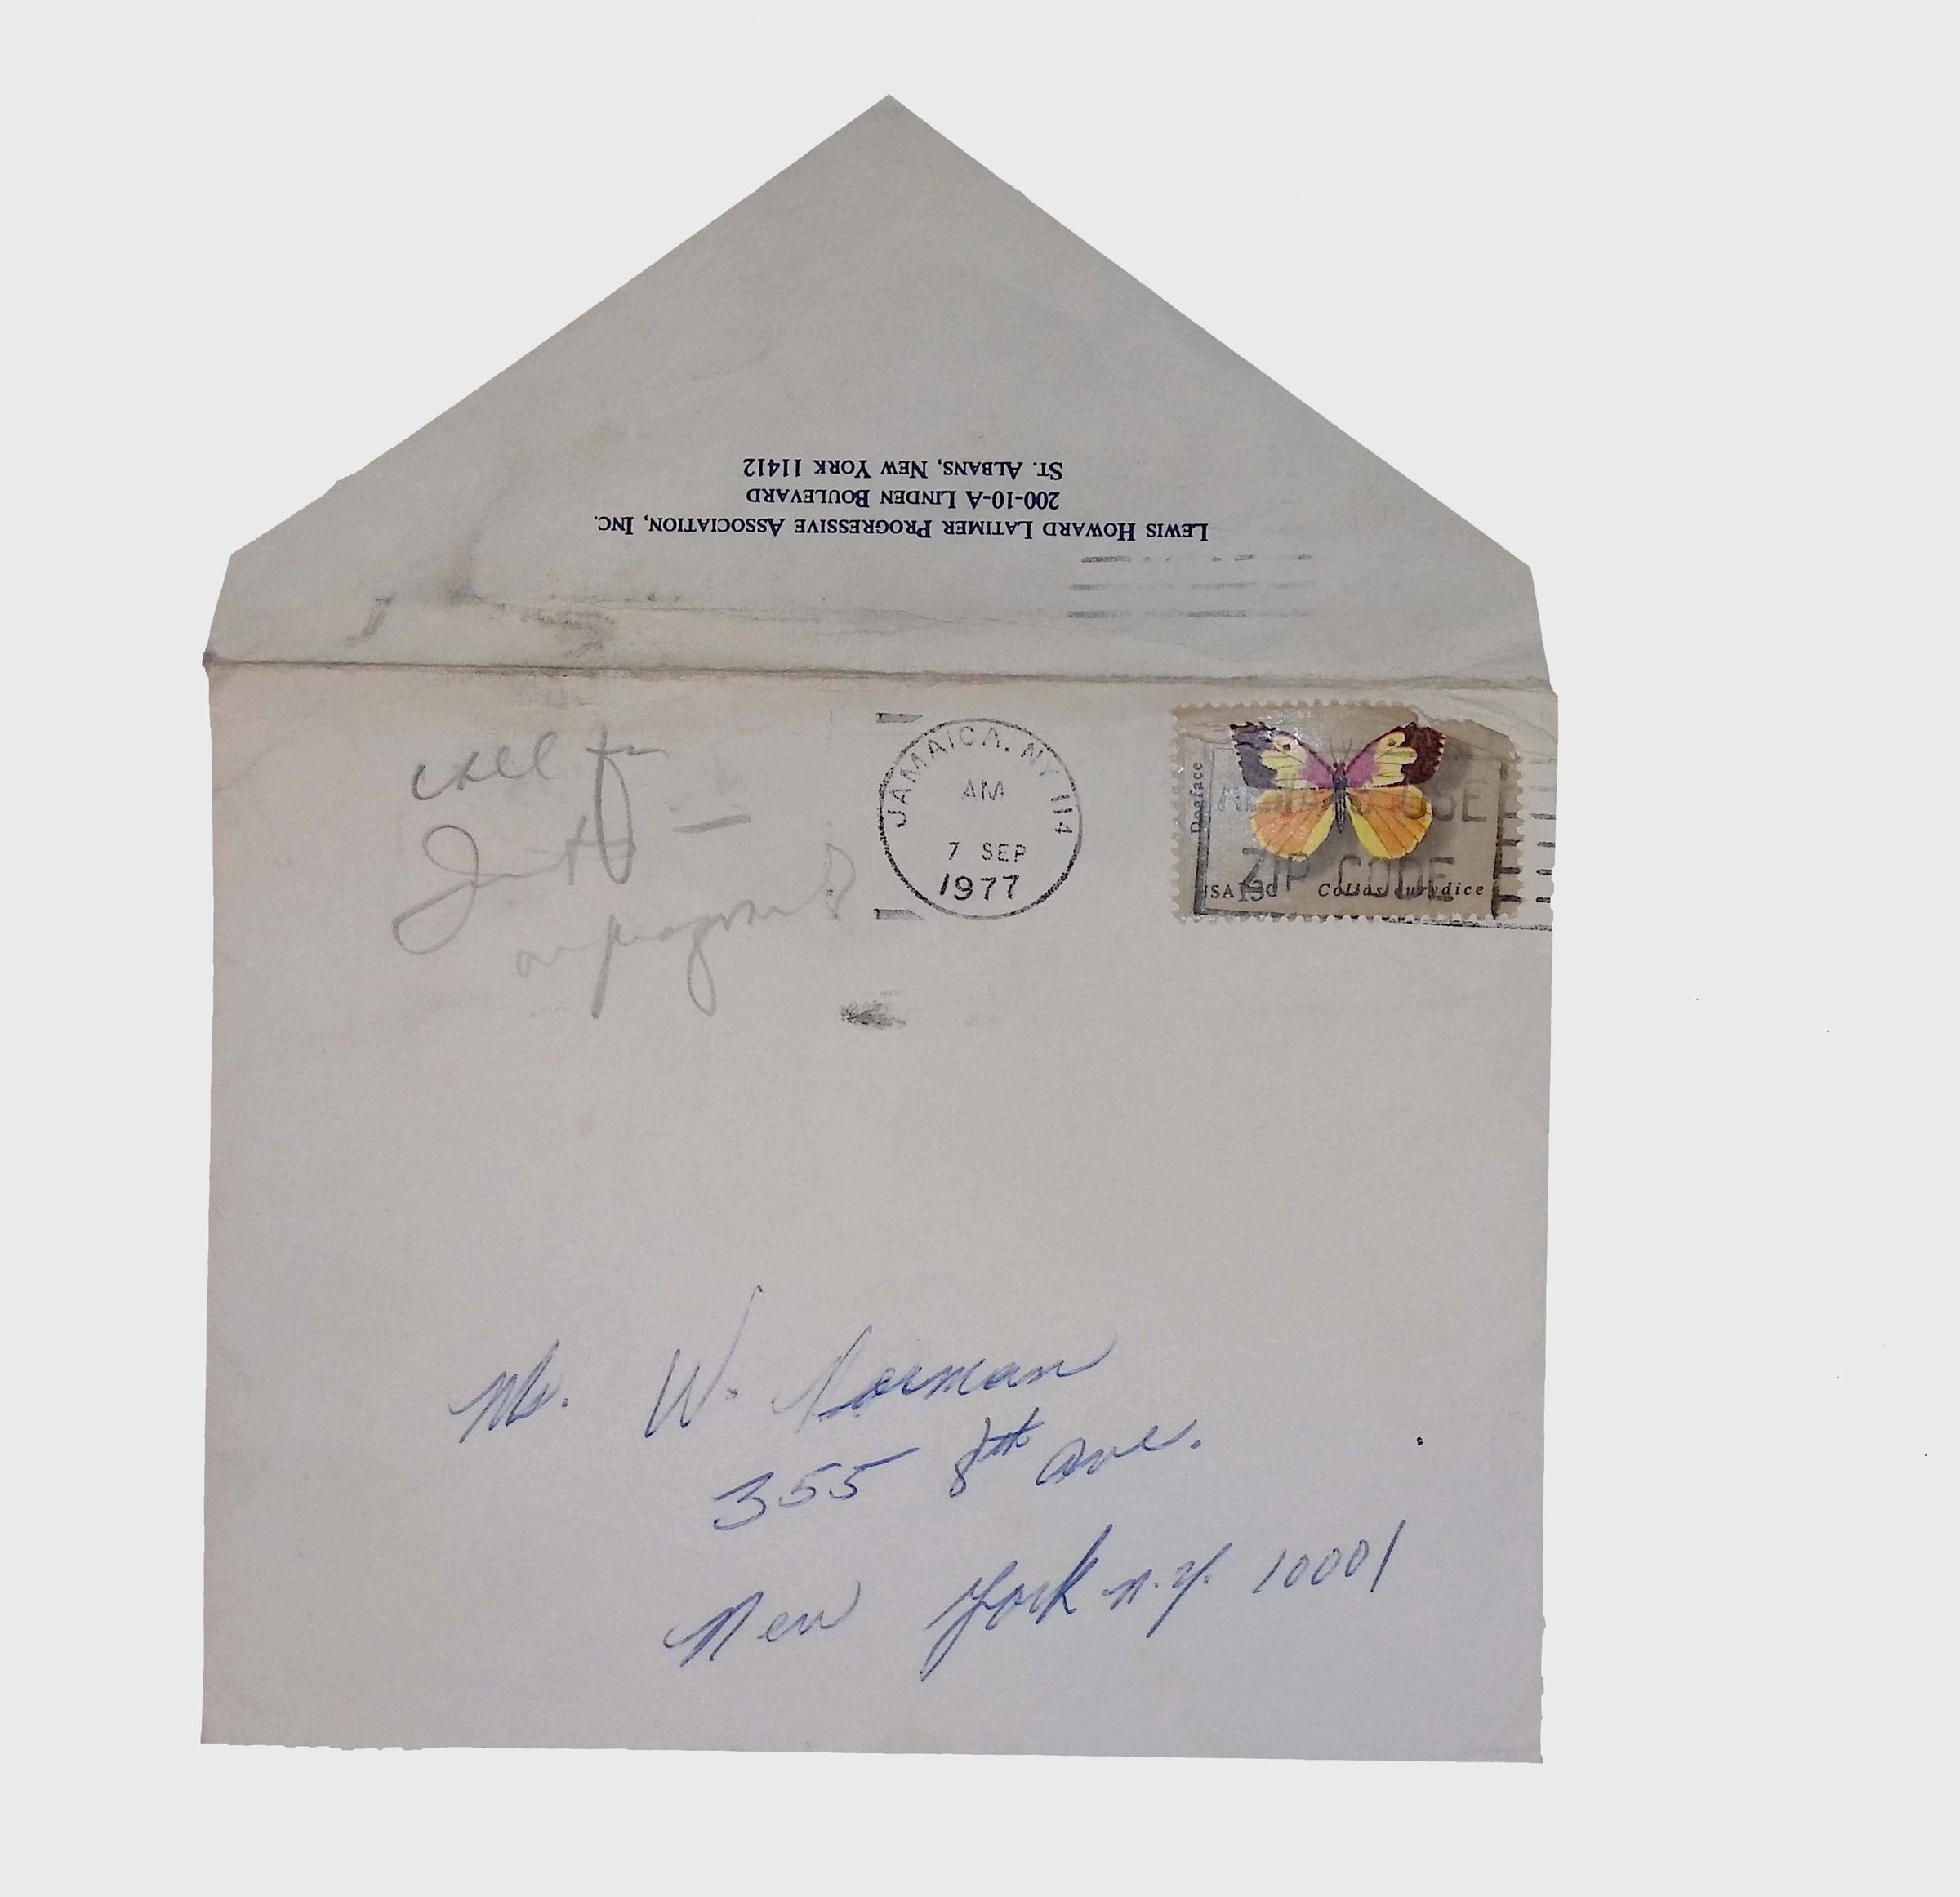 LEWIS HOWARD LATIMER PROGRESSIVE ASSOCIATION, INC.
200-10-A LINDEN BOULEVARD
ST. ALBANS, NEW YORK 11412
JAMAICA. NY 114
AM
7 SEP
1977
Dogface
USE
ZIP CODE
USA 13c Colias eurydice
call for
Mr. W. Norman
355 8th Ave.
New York N.Y. 10001